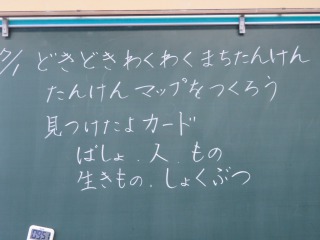 7/1 どきどきわくわくまちたんけん
たんけんマップをつくろう
見つけたよカード
ばしょ.人.もの
生きもの.しょくぶつ